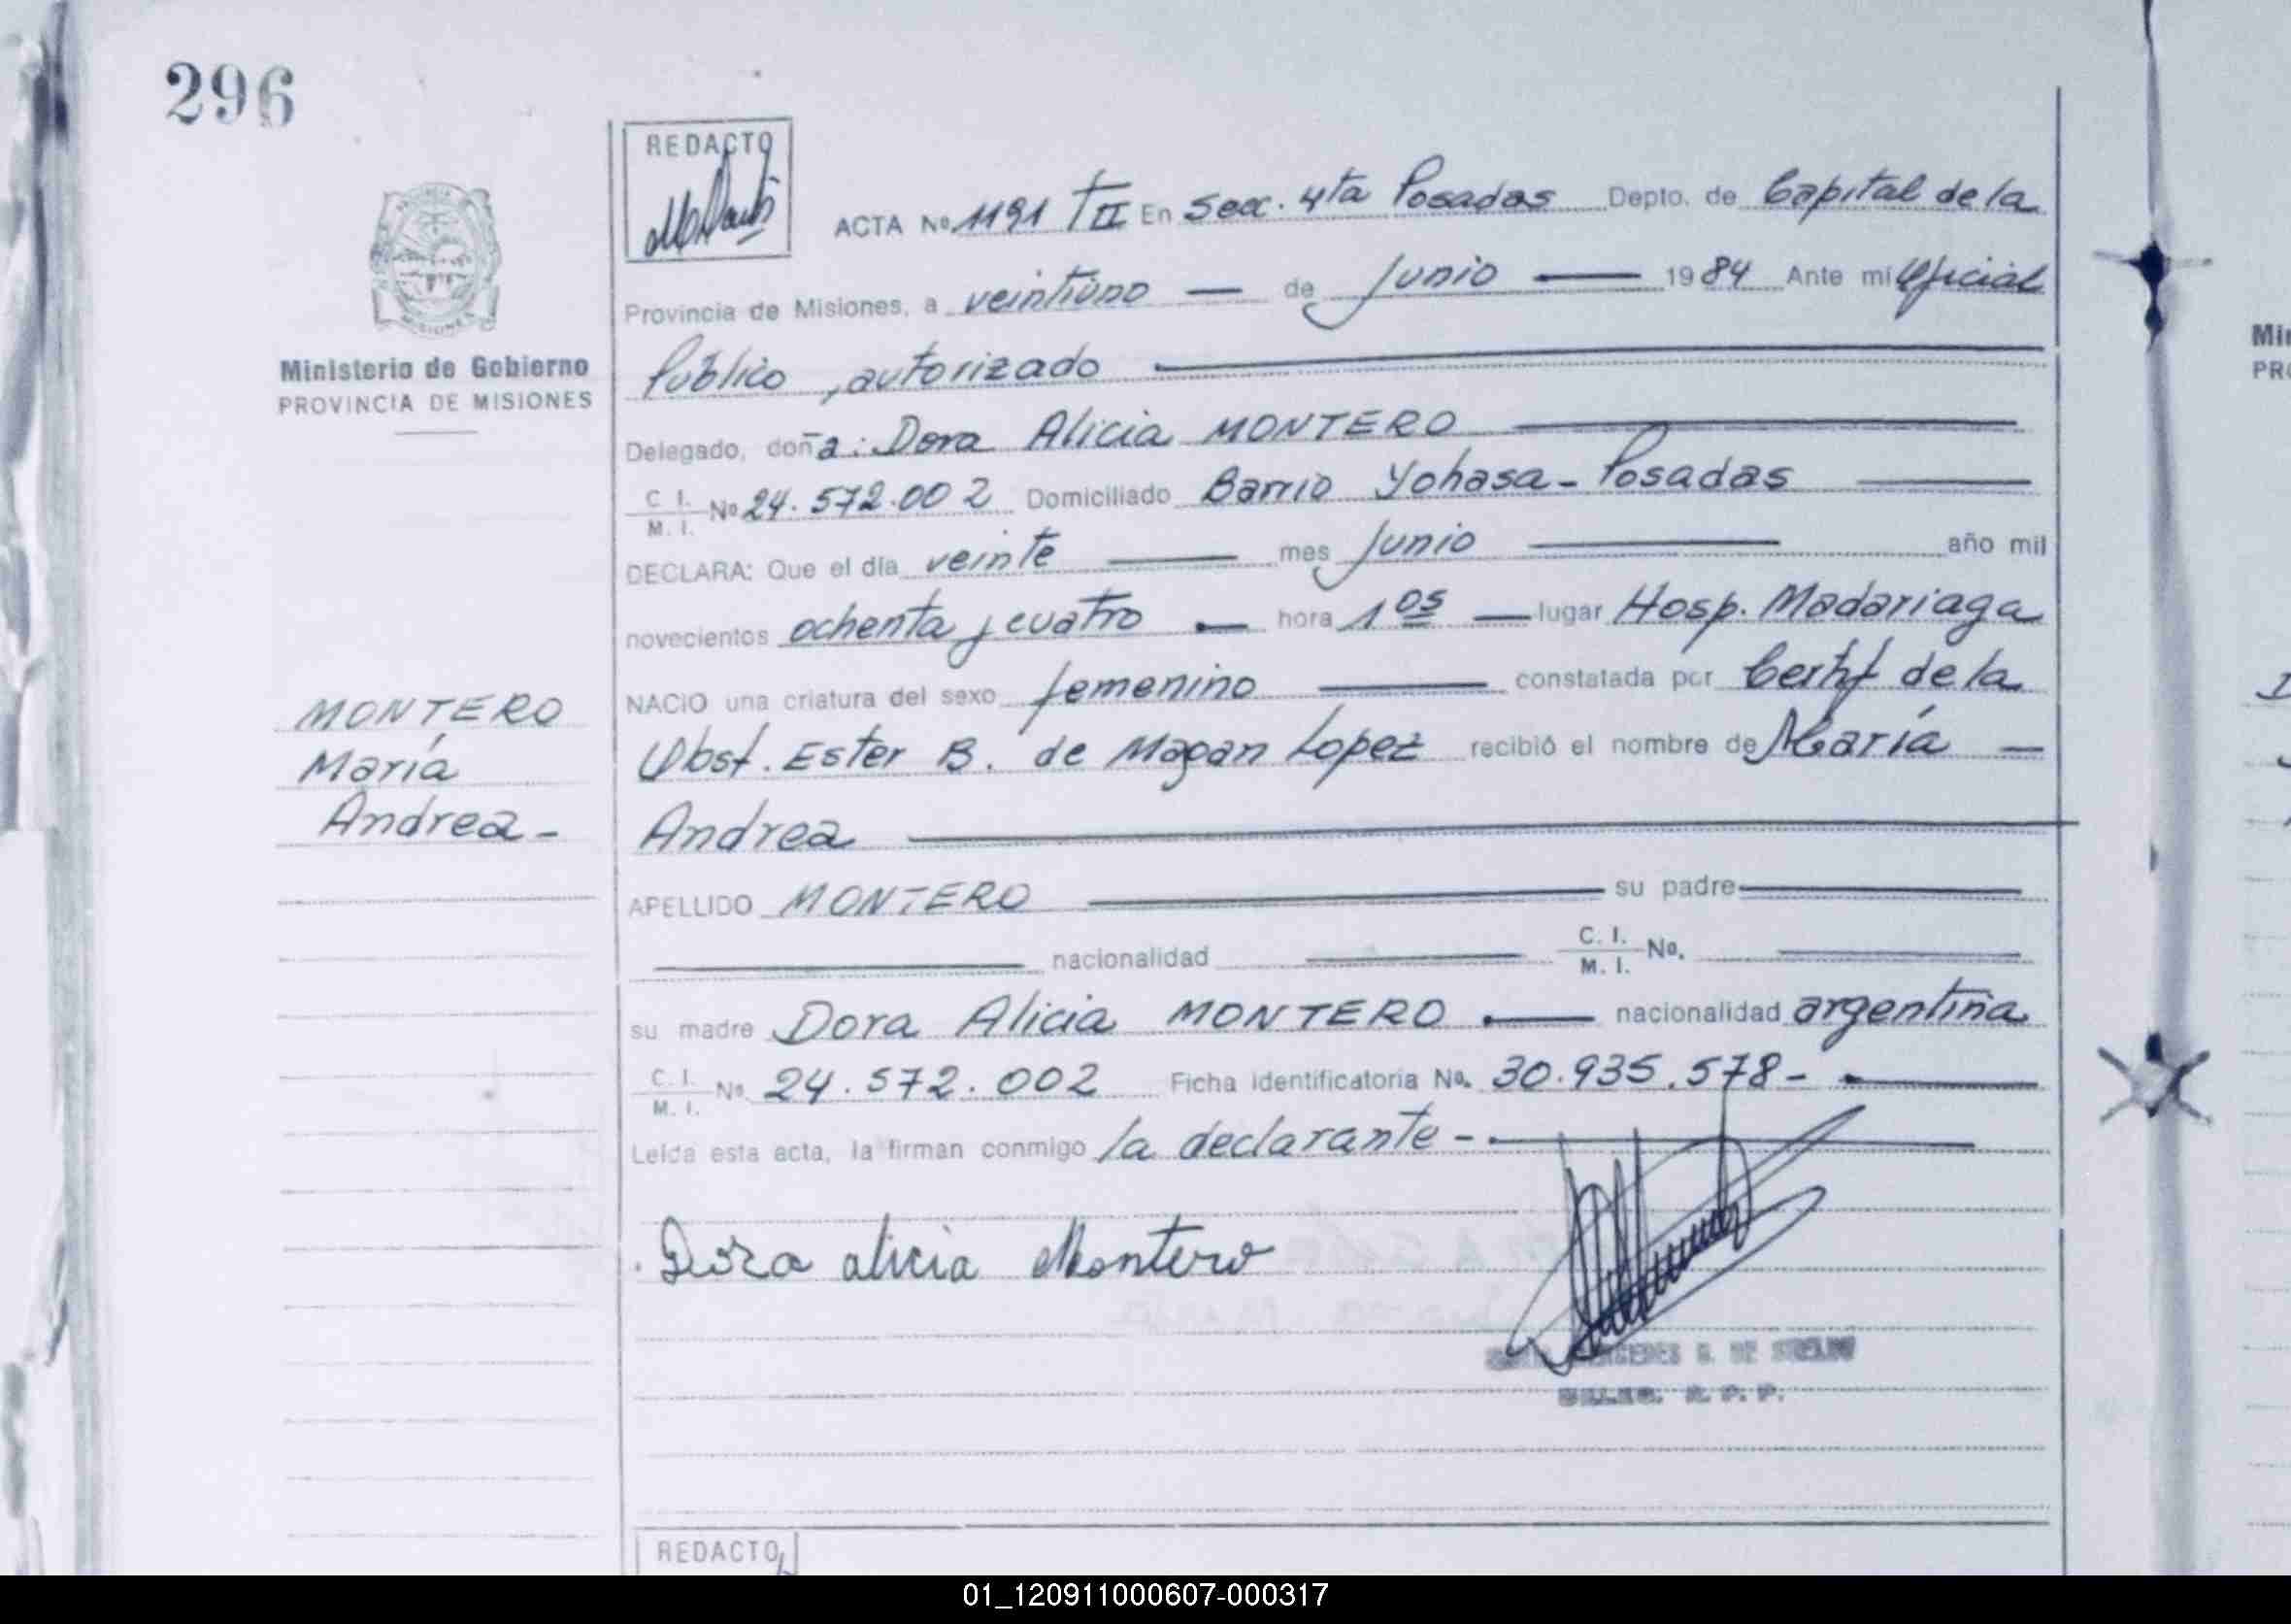 296
REDACTO
ACTA Nº 1191 T II En Secc. 4ta Posadas Depto. de Capital de la
Provincia de Misiones, a veintiuno — de Junio — 1984 Ante mi Oficial
Público, autorizado
Ministerio de Gobierno
PROVINCIA DE MISIONES
Delegado, doña: Dora Alicia MONTERO
C. I. / M. I. Nº 24.572.002 Domiciliado Barrio Yohasa - Posadas
DECLARA: Que el día veinte — mes Junio — año mil
novecientos ochenta y cuatro — hora 1 05 — lugar Hosp. Madariaga
NACIO una criatura del sexo femenino — constatada por Certif de la
Obst. Ester B. de Magan Lopez recibió el nombre de María —
Andrea
MONTERO
María
Andrea -
APELLIDO MONTERO — su padre
nacionalidad — C. I. / M. I. No.
su madre Dora Alicia MONTERO — nacionalidad argentina
C. I. / M. I. No. 24.572.002 Ficha identificatoria No. 30.935.578 -
Leída esta acta, la firman conmigo la declarante -
Dora alicia Montero
REDACTO
Min
PRO
01_120911000607-000317